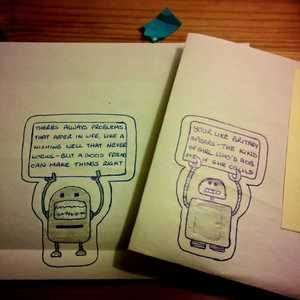 THERES ALWAYS PROBLEMS
THAT APPER IN LIFE, LIKE A
WISHING WELL THAT NEVER
WORKS - BUT A GOOD FRIEND
CAN MAKE THINGS RIGHT
YOUR LIKE BRITNEY
SPEERS - THE KIND
OF GIRL WHO'D
ME IF SHE COULD